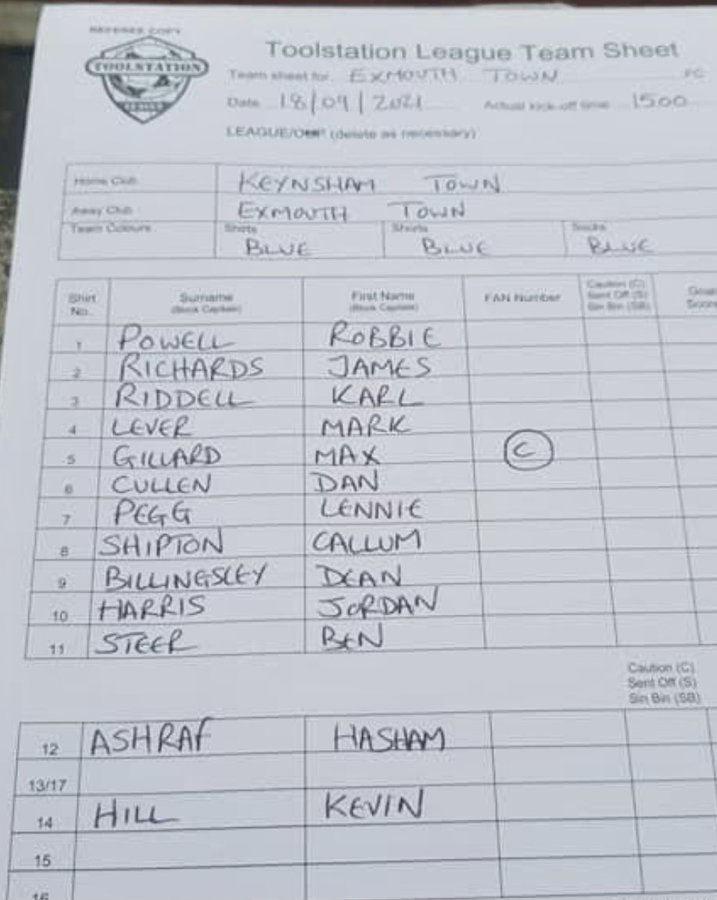 REFEREE COPY
TOOLSTATION
LEAGUE
Toolstation League Team Sheet
Team sheet for EXMOUTH TOWN FC
Date 18/09/2021 Actual kick-off time 1500
LEAGUE/CUP (delete as necessary)
Home Club KEYNSHAM TOWN
Away Club EXMOUTH TOWN
Team Colours Shirts BLUE Shorts BLUE Socks BLUE
Shirt No. Surname (Block Capitals) First Name (Block Capitals) FAN Number Caution (C) Sent Off (S) Sin Bin (SB)
1 POWELL ROBBIE
2 RICHARDS JAMES
3 RIDDELL KARL
4 LEVER MARK
5 GILLARD MAX C
6 CULLEN DAN
7 PEGG LENNIE
8 SHIPTON CALLUM
9 BILLINGSLEY DEAN
10 HARRIS JORDAN
11 STEER BEN
Caution (C)
Sent Off (S)
Sin Bin (SB)
12 ASHRAF HASHAM
13/17
14 HILL KEVIN
15
16